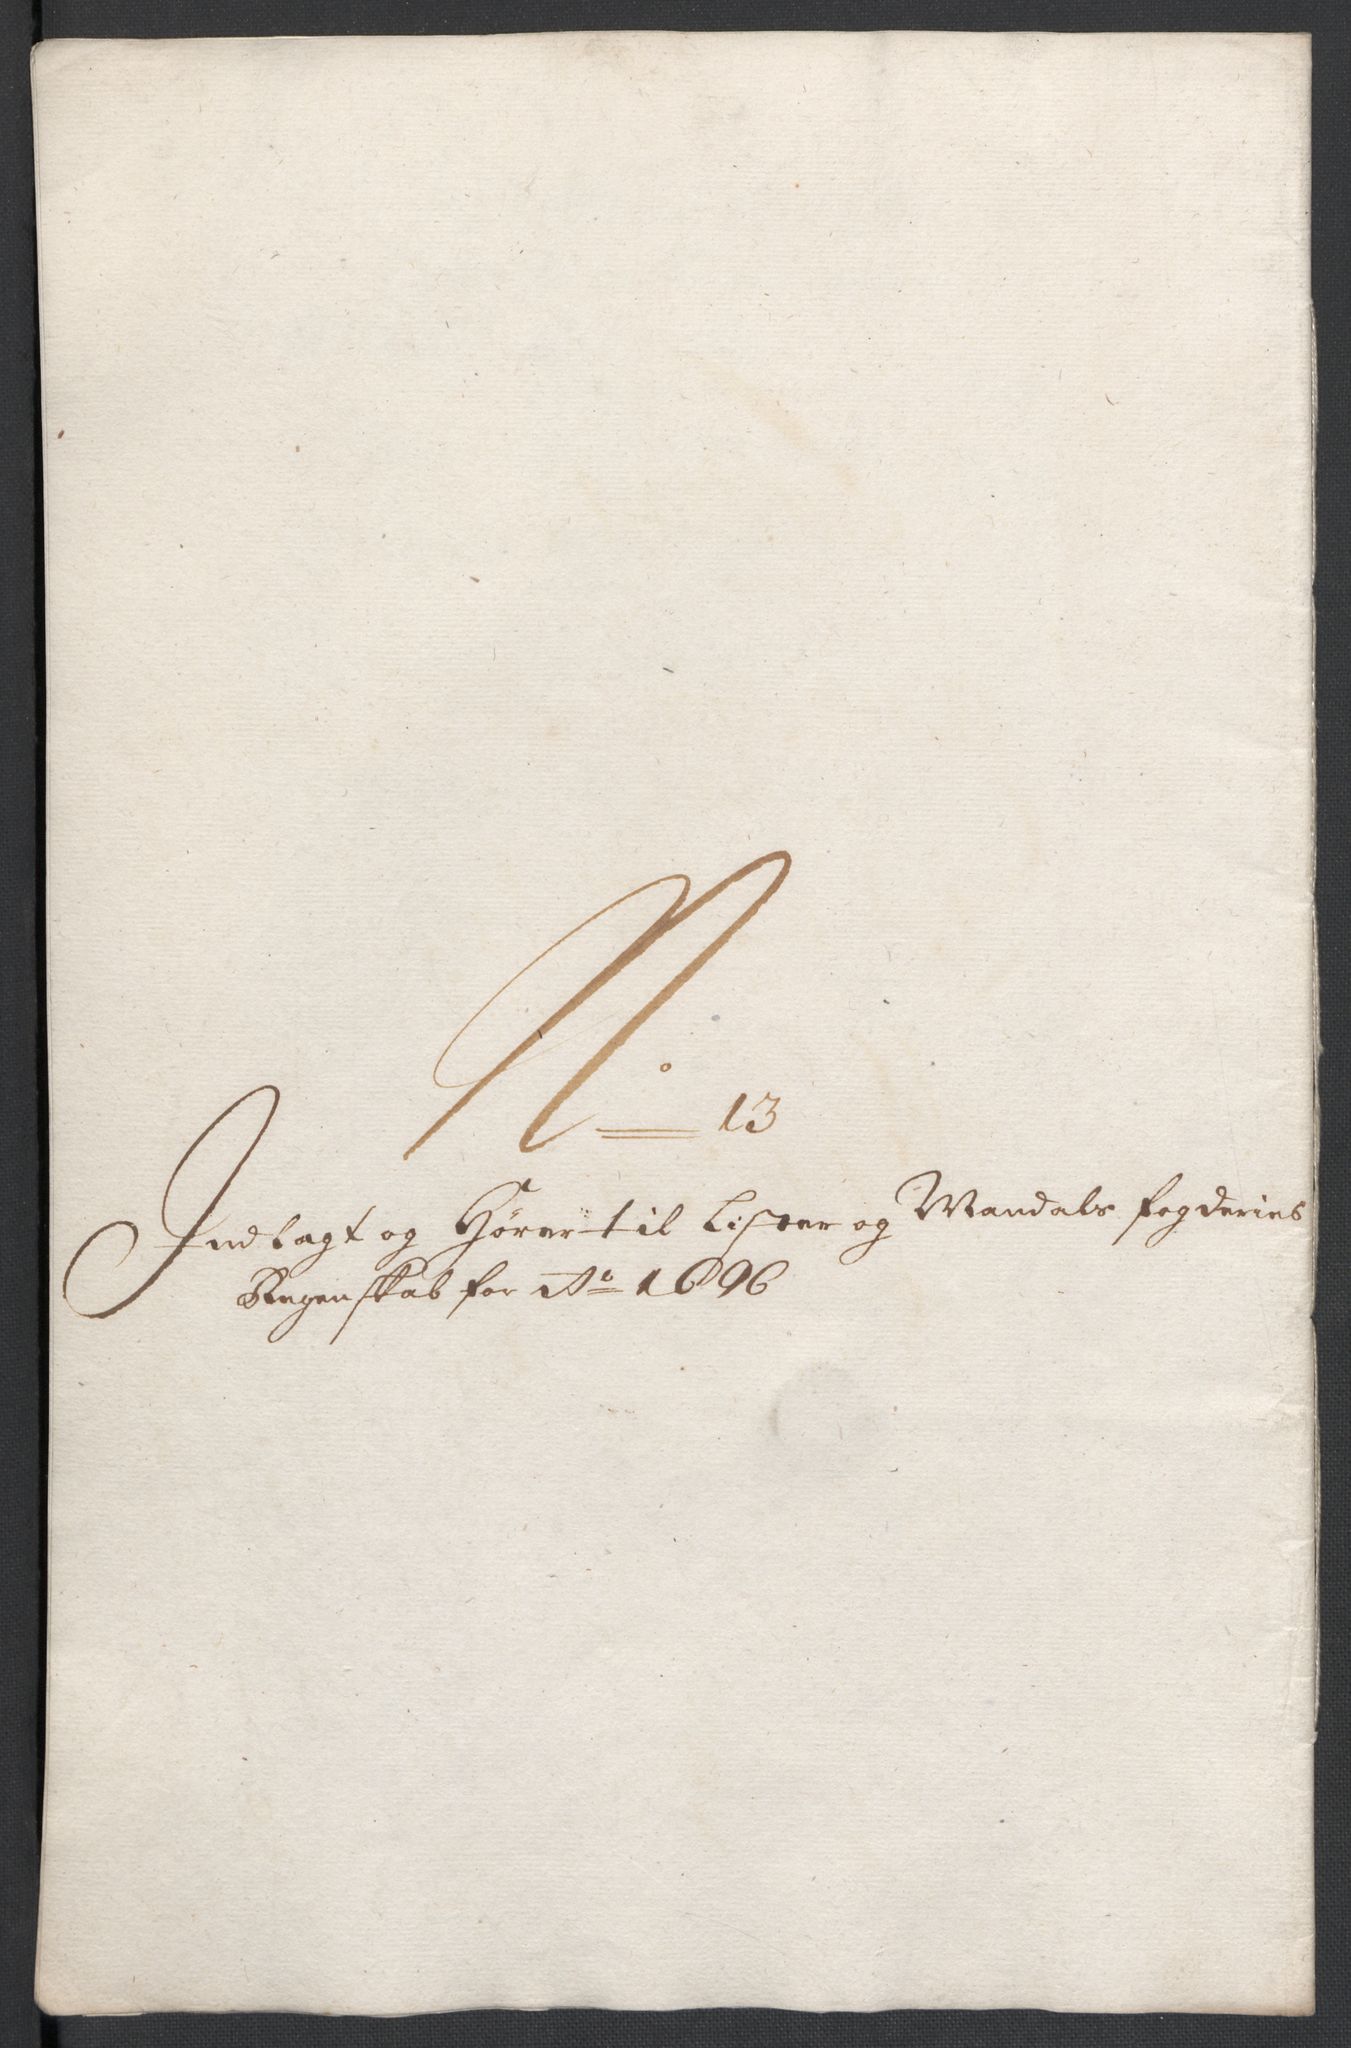 No 13
Indlagt og Hører til Lister og Mandals fogderies
Regenskab for Ao 1696